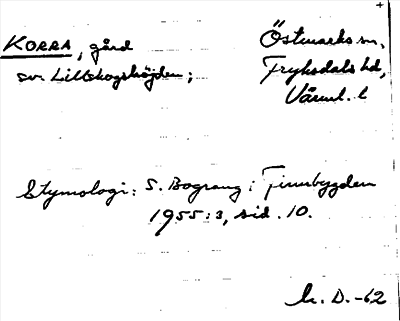 KORRA, gård
sv. Lillskogshöjden;
Östmarks sn,
Fryksdals hd,
Värml. l
Etymologi: S. Bograng i Finnbygden
1955:3, sid. 10.
h. D. -62